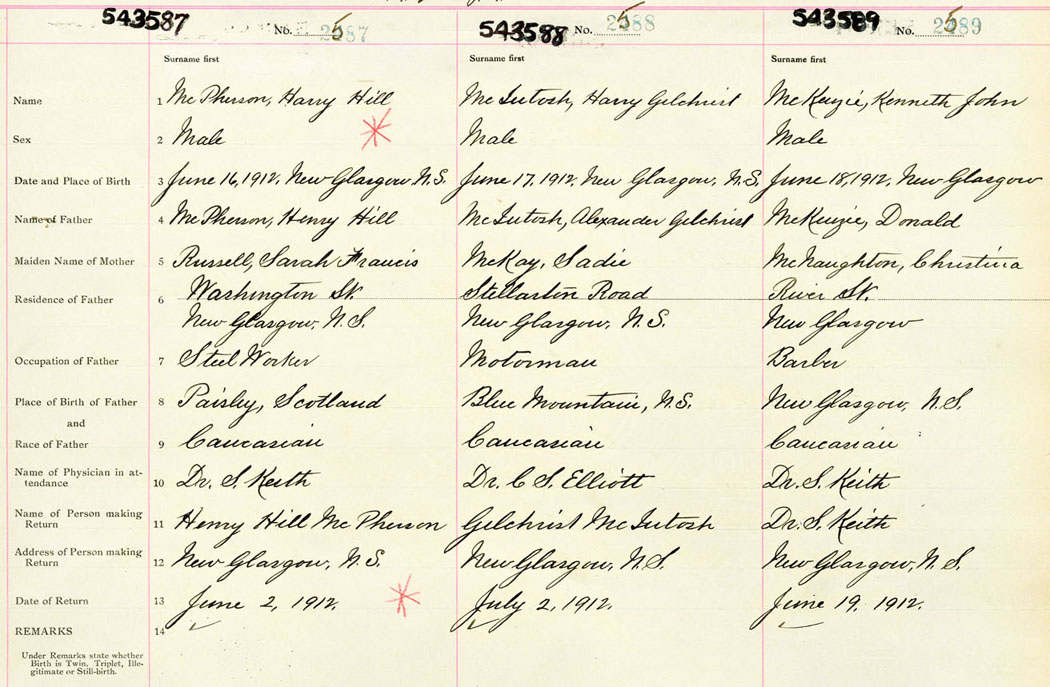 543587 No. 5 2587 543588 No. 5 2588 543589 No. 5 2589
Surname first Surname first Surname first
Name 1 McPherson, Harry Hill McIntosh, Harry Gilchrist McKenzie, Kenneth John
Sex 2 Male Male Male
Date and Place of Birth 3 June 16, 1912, New Glasgow N.S. June 17, 1912, New Glasgow, N.S. June 18, 1912, New Glasgow
Name of Father 4 McPherson, Henry Hill McIntosh, Alexander Gilchrist McKenzie, Donald
Maiden Name of Mother 5 Russell, Sarah Francis McKay, Sadie McNaughton, Christina
Residence of Father 6 Washington St. Stellarton Road River St.
New Glasgow, N.S. New Glasgow, N.S. New Glasgow
Occupation of Father 7 Steel Worker Motorman Barber
Place of Birth of Father 8 Paisley, Scotland Blue Mountain, N.S. New Glasgow, N.S.
and
Race of Father 9 Caucasian Caucasian Caucasian
Name of Physician in at-
tendance 10 Dr. S. Keith Dr. C S. Elliott Dr. S. Keith
Name of Person making
Return 11 Henry Hill McPherson Gilchrist McIntosh Dr. S. Keith
Address of Person making
Return 12 New Glasgow, N.S. New Glasgow, N.S. New Glasgow, N.S.
Date of Return 13 June 2, 1912. July 2, 1912. June 19, 1912.
REMARKS 14
Under Remarks state whether
Birth is Twin, Triplet, Ille-
gitimate or Still-birth.